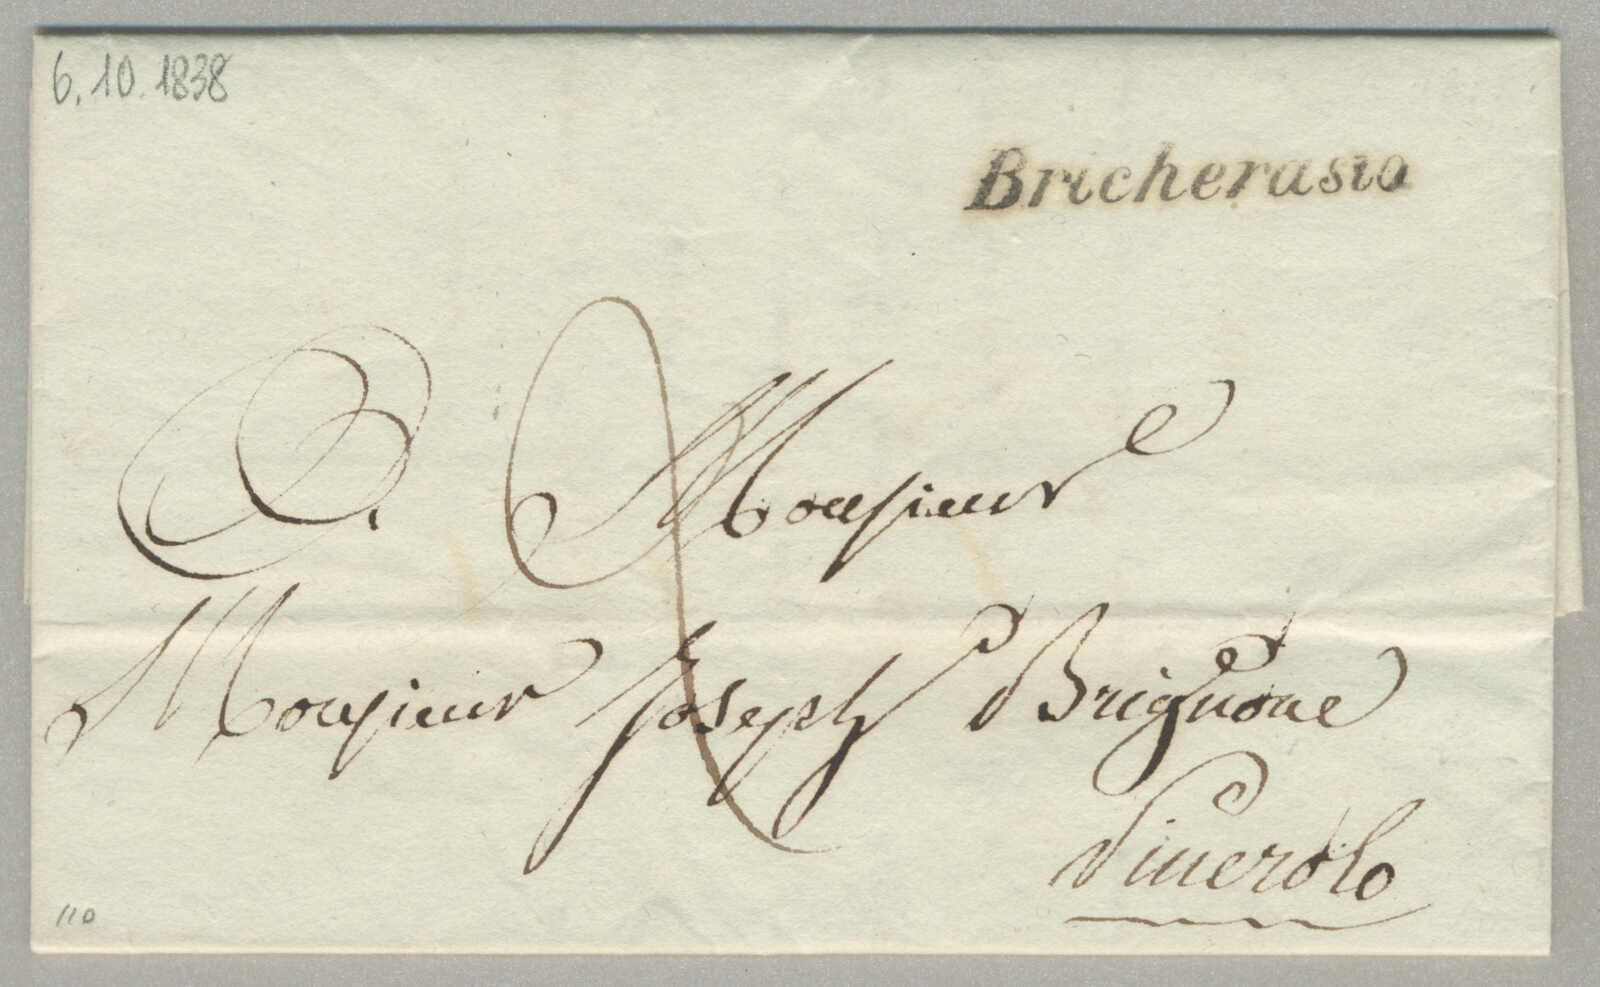 6.10.1838
Bricherasio
A Monsieur
Monsieur Joseph Brignone
Pinerolo
110